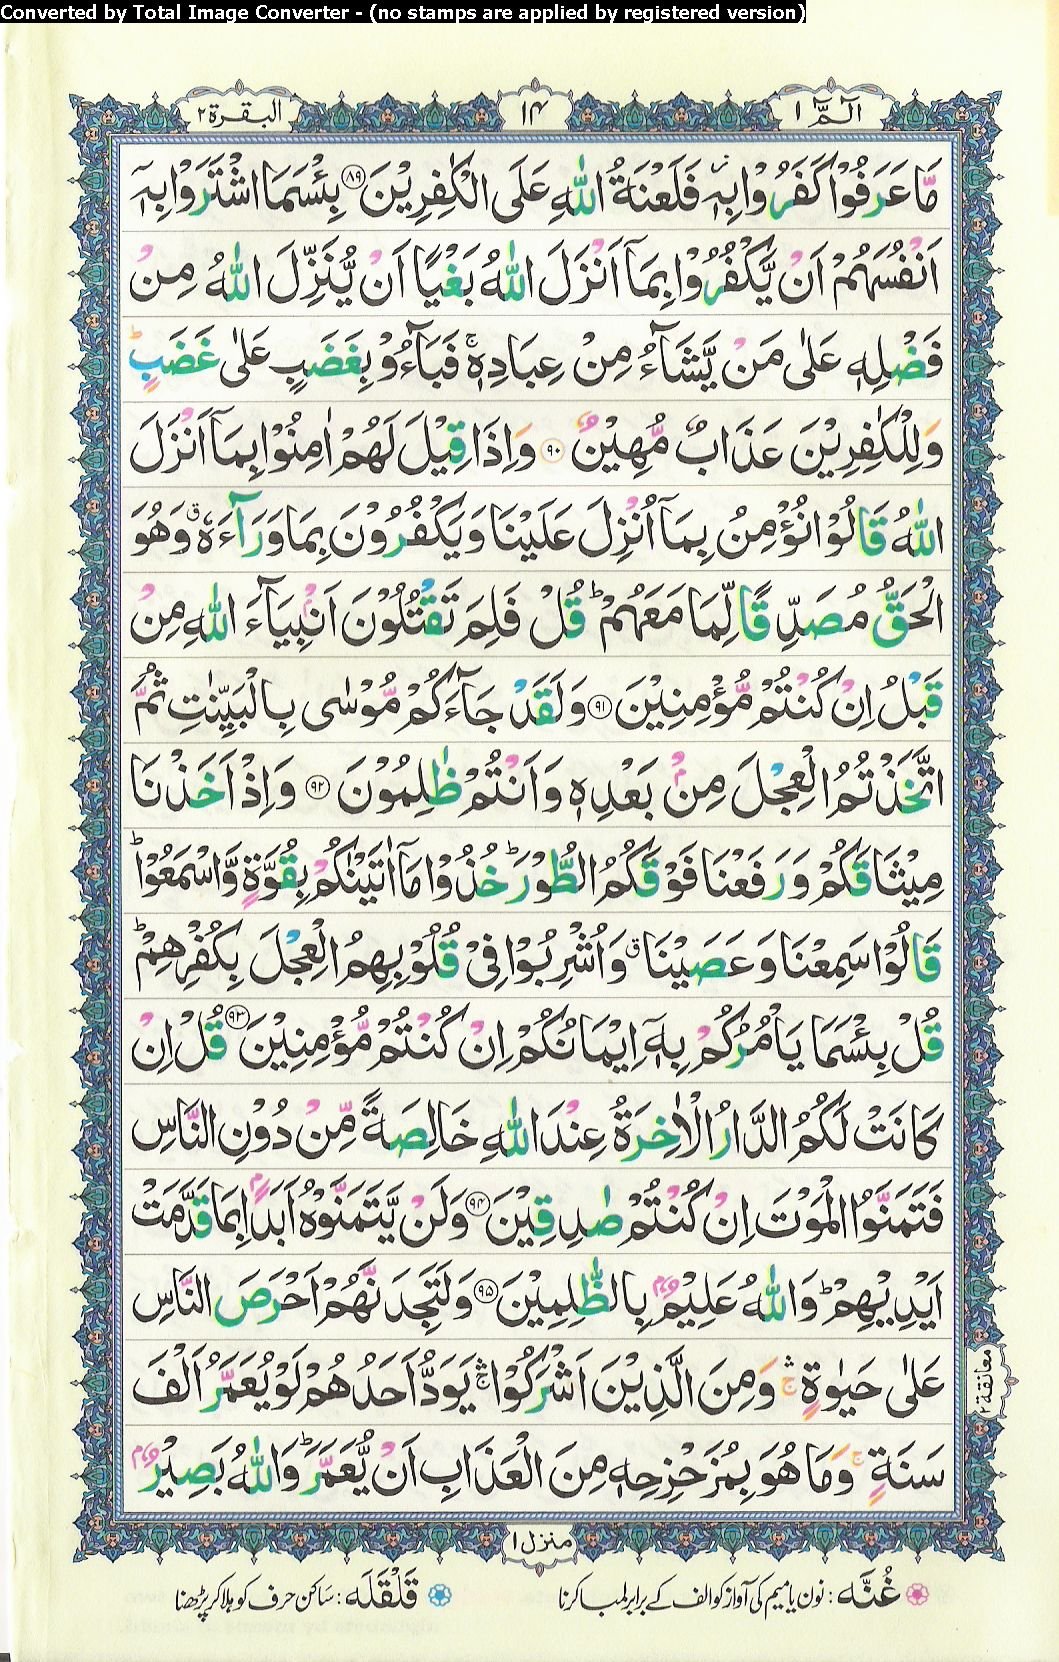 Converted by Total Image Converter - (no stamps are applied by registered version)
الٓمّٓ ١
١٤
البقرة ٢
مَّا عَرَفُوْا كَفَرُوْا بِهٖ٘ فَلَعْنَةُ اللّٰهِ عَلَى الْكٰفِرِيْنَ ﴿٨٩﴾ بِئْسَمَا اشْتَرَوْا بِهٖۤ
اَنْفُسَهُمْ اَنْ يَّكْفُرُوْا بِمَاۤ اَنْزَلَ اللّٰهُ بَغْيًا اَنْ يُّنَزِّلَ اللّٰهُ مِنْ
فَضْلِهٖ عَلٰى مَنْ يَّشَآءُ مِنْ عِبَادِهٖۚ فَبَآءُوْ بِغَضَبٍ عَلٰى غَضَبٍؕ
وَلِلْكٰفِرِيْنَ عَذَابٌ مُّهِيْنٌ ﴿٩٠﴾ وَاِذَا قِيْلَ لَهُمْ اٰمِنُوْا بِمَاۤ اَنْزَلَ
اللّٰهُ قَالُوْا نُؤْمِنُ بِمَاۤ اُنْزِلَ عَلَيْنَا وَيَكْفُرُوْنَ بِمَا وَرَآءَهٗۗ وَهُوَ
الْحَقُّ مُصَدِّقًا لِّمَا مَعَهُمْؕ قُلْ فَلِمَ تَقْتُلُوْنَ اَنْۢبِيَآءَ اللّٰهِ مِنْ
قَبْلُ اِنْ كُنْتُمْ مُّؤْمِنِيْنَ ﴿٩١﴾ وَلَقَدْ جَآءَكُمْ مُّوْسٰى بِالْبَيِّنٰتِ ثُمَّ
اتَّخَذْتُمُ الْعِجْلَ مِنْۢ بَعْدِهٖ وَاَنْتُمْ ظٰلِمُوْنَ ﴿٩٢﴾ وَاِذْ اَخَذْنَا
مِيْثَاقَكُمْ وَرَفَعْنَا فَوْقَكُمُ الطُّوْرَؕ خُذُوْا مَاۤ اٰتَيْنٰكُمْ بِقُوَّةٍ وَّاسْمَعُوْاؕ
قَالُوْا سَمِعْنَا وَعَصَيْنَاۗ وَاُشْرِبُوْا فِيْ قُلُوْبِهِمُ الْعِجْلَ بِكُفْرِهِمْؕ
قُلْ بِئْسَمَا يَاْمُرُكُمْ بِهٖۤ اِيْمَانُكُمْ اِنْ كُنْتُمْ مُّؤْمِنِيْنَ ﴿٩٣﴾ قُلْ اِنْ
كَانَتْ لَكُمُ الدَّارُ الْاٰخِرَةُ عِنْدَ اللّٰهِ خَالِصَةً مِّنْ دُوْنِ النَّاسِ
فَتَمَنَّوُا الْمَوْتَ اِنْ كُنْتُمْ صٰدِقِيْنَ ﴿٩٤﴾ وَلَنْ يَّتَمَنَّوْهُ اَبَدًۢا بِمَا قَدَّمَتْ
اَيْدِيْهِمْؕ وَاللّٰهُ عَلِيْمٌۢ بِالظّٰلِمِيْنَ ﴿٩٥﴾ وَلَتَجِدَنَّهُمْ اَحْرَصَ النَّاسِ
عَلٰى حَيٰوةٍۛۚ وَمِنَ الَّذِيْنَ اَشْرَكُوْاۛۚ يَوَدُّ اَحَدُهُمْ لَوْ يُعَمَّرُ اَلْفَ
سَنَةٍۚ وَمَا هُوَ بِمُزَحْزِحِهٖ مِنَ الْعَذَابِ اَنْ يُّعَمَّرَؕ وَاللّٰهُ بَصِيْرٌۢ
معانقة ٢
منزل ١
غُنَّه: نون یا میم کی آواز کو الف کے برابر لمبا کرنا
قَلْقَلَه: ساکن حرف کو ہلا کر پڑھنا